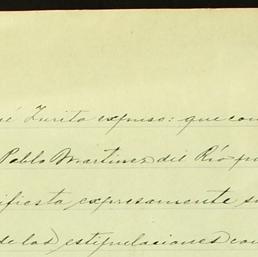 é Zurita expuso: que con
Pablo Martinez del Río pr
ifiesta expresamente su
de las estipulaciones con